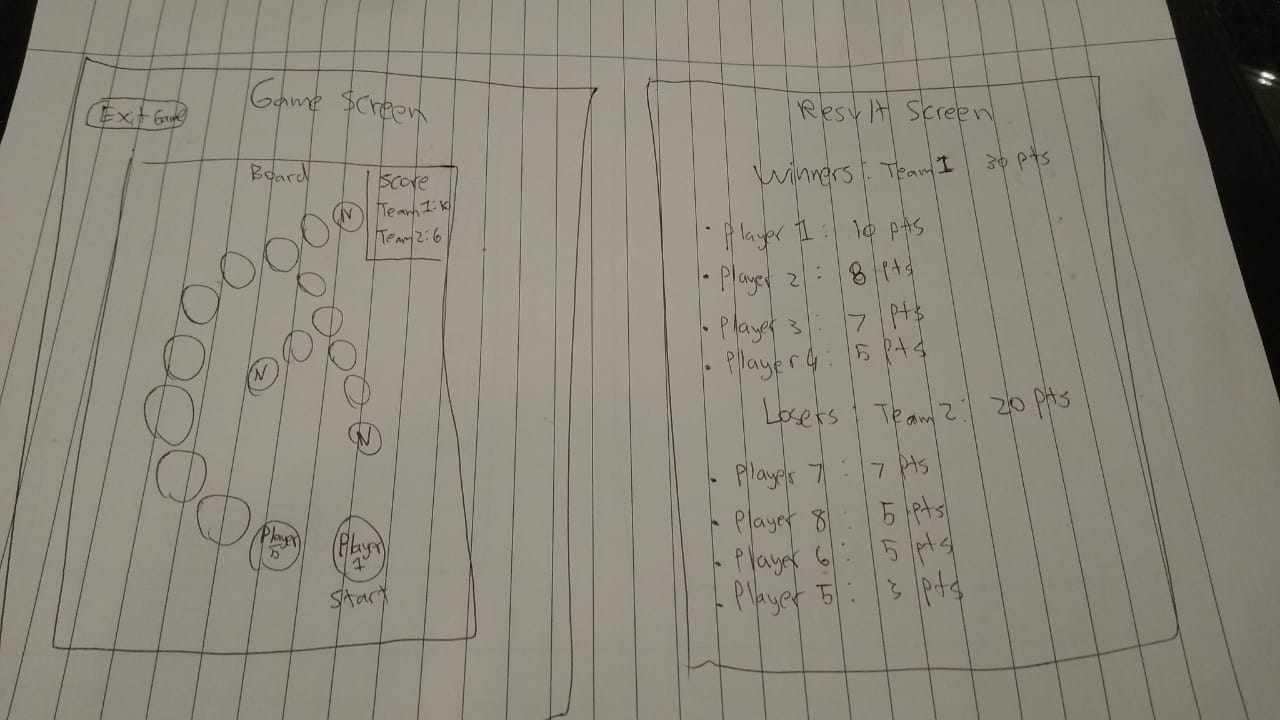 Game Screen
Exit Game
Board
Score
Team 1: 10
Team 2: 6
N
N
N
Player 5
Player 1
Start
Result Screen
Winners: Team 1 30 pts
• Player 1: 10 pts
• Player 2: 8 pts
• Player 3: 7 pts
• Player 4: 5 pts
Losers: Team 2: 20 pts
• Player 7: 7 pts
• Player 8: 5 pts
• Player 6: 5 pts
• Player 5: 3 pts